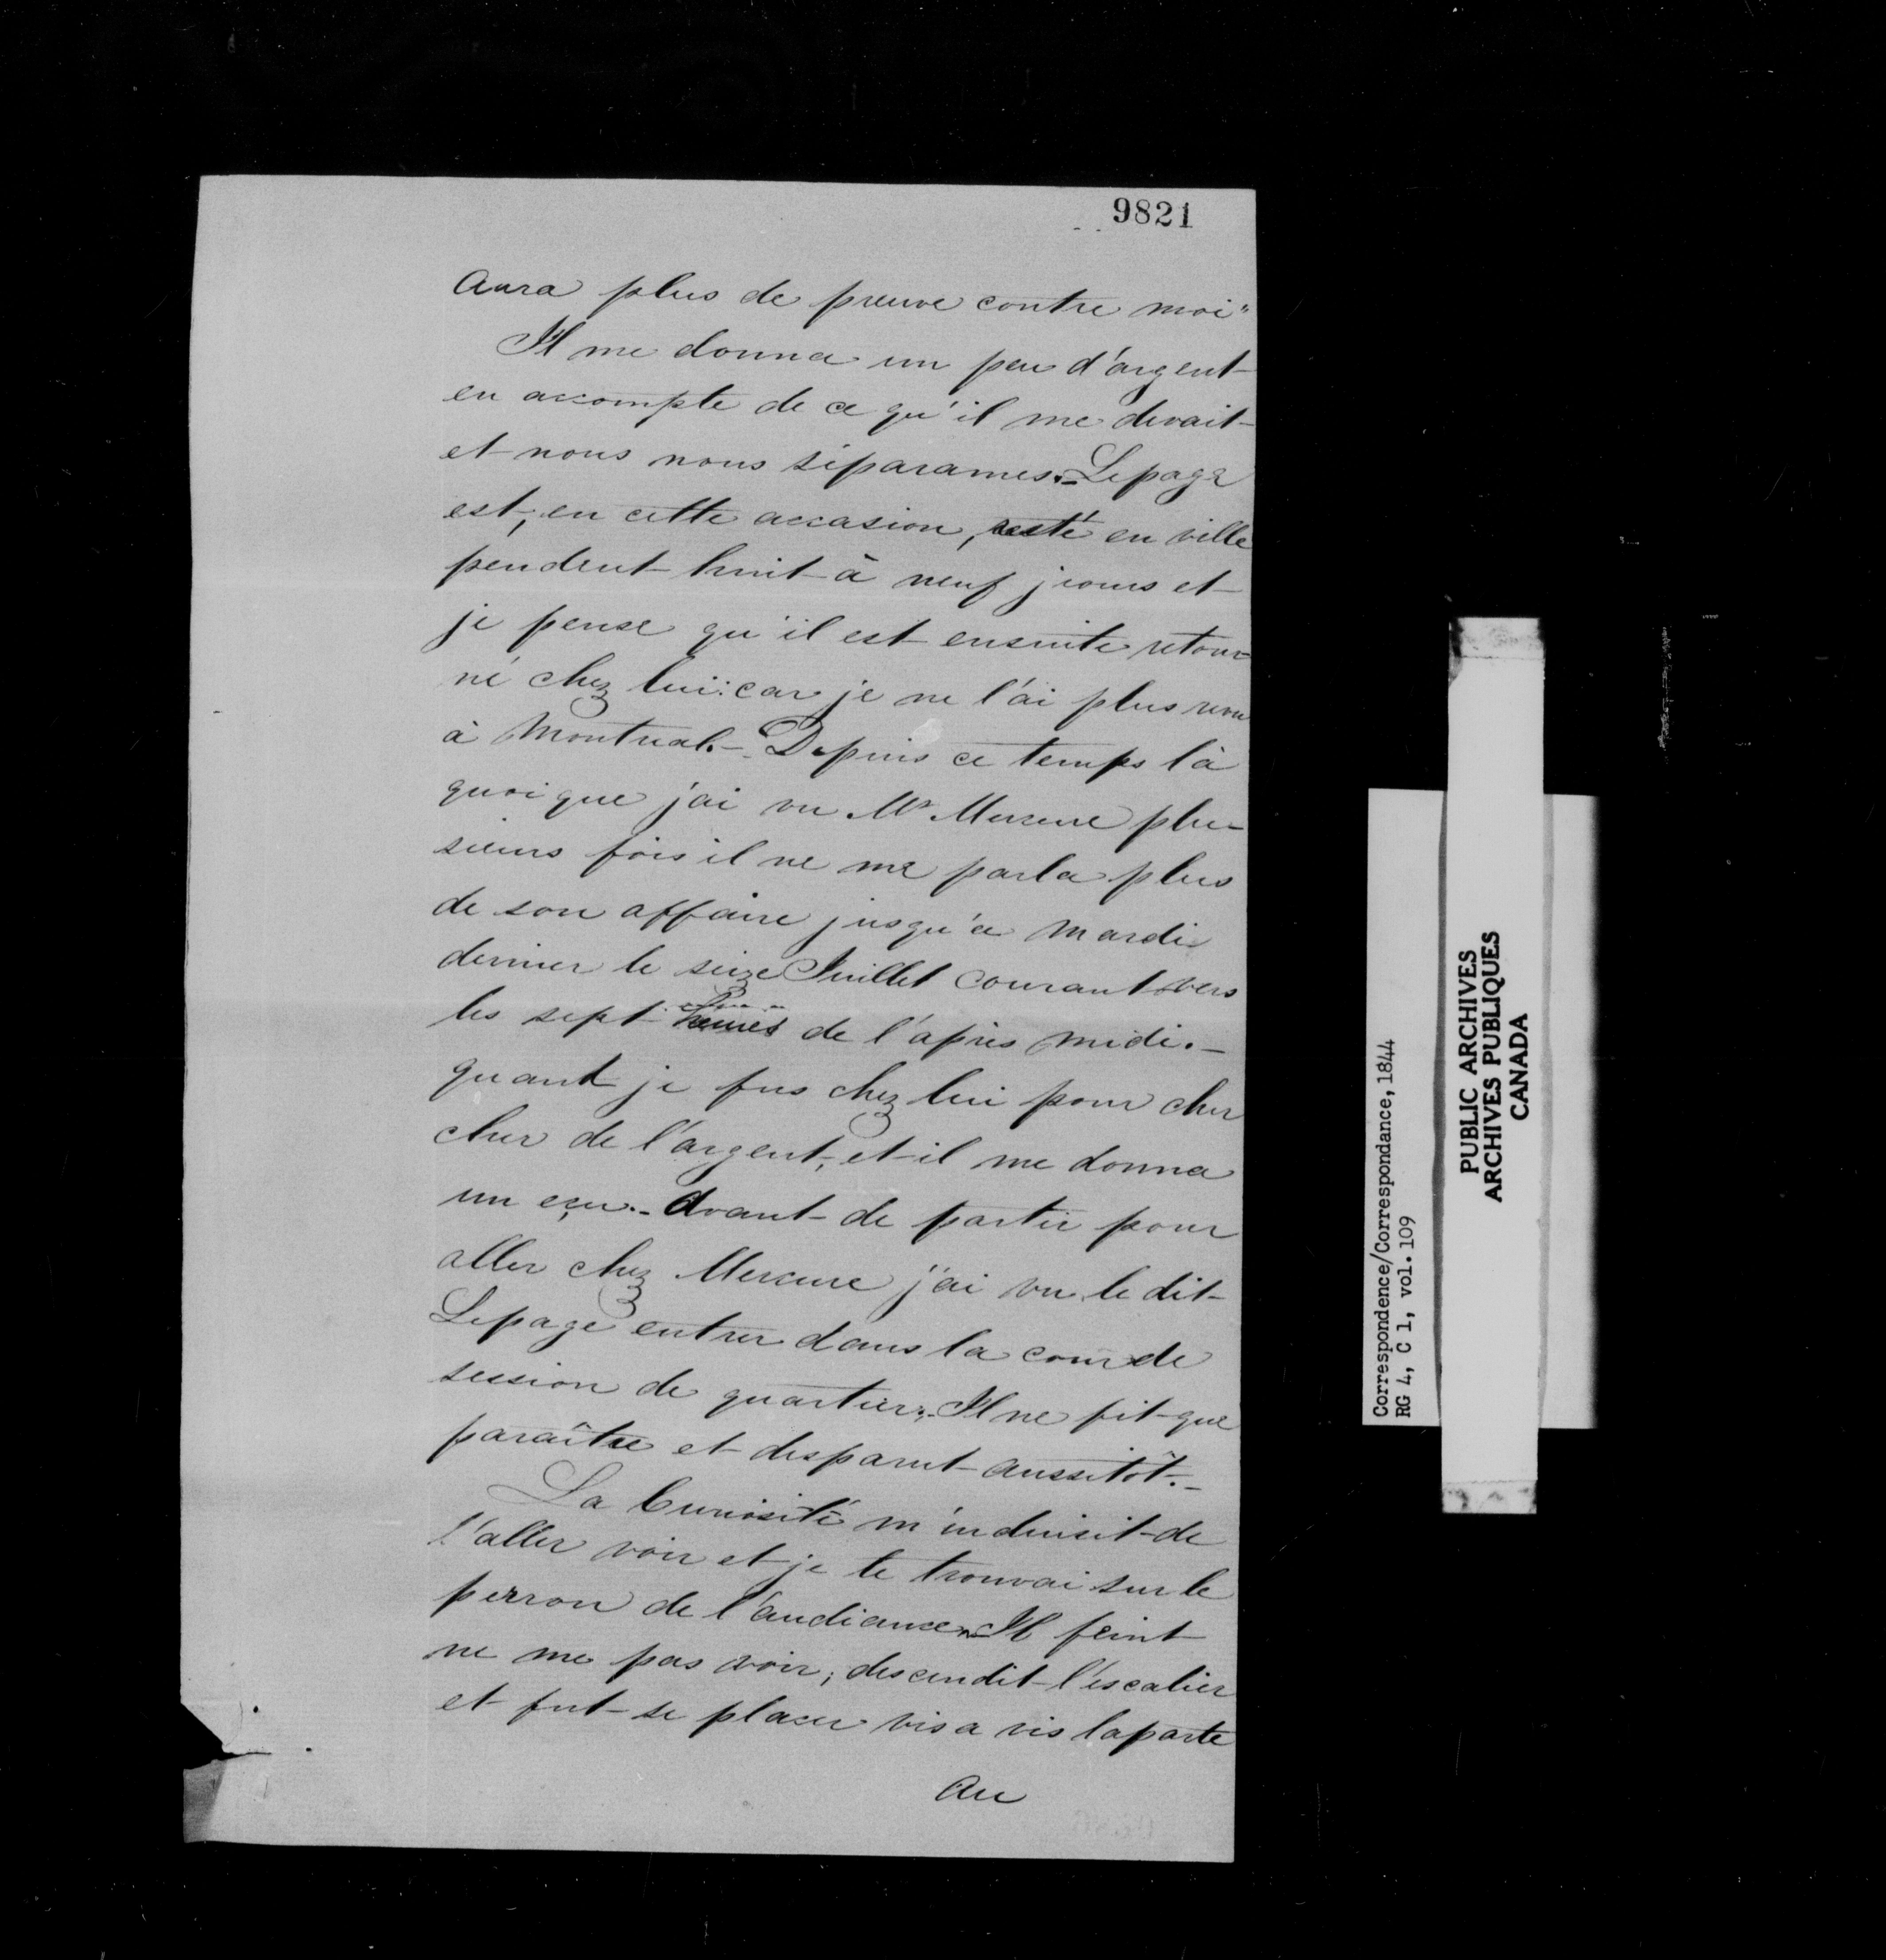 9821
aura plus de preuve contre moi"
Il me donna un peu d'argent
en accompte de ce qu'il me devait
et nous nous séparames.- Lepage
est, en cette accasion, resté en ville
pendent huit à neuf jrours et
je pense qu'il est ensuite retour-
né chez lui: car je ne l'ai plus revu
à Montreal.- Depuis ce temps là
quoique j'ai vu Mr Mercure plu-
sieurs fois il ne me parla plus
de son affaire jusqu'a Mardi
dernier le seize Juillet courant vers
les sept heures de l'après midi.-
quand je fus chez lui pour cher
cher de l'argent, et il me donna
un eçu.- Avant de partir pour
aller chez Mercure j'ai vu le dit
Lepage entrer dans la cour de
session de quartier.- Il ne fit que
paraître et disparut aussitôt.-
La Curiosité m'induisit de
l'aller voir et je le trouvai sur le
perron de l'audiance.- Il feint
ne me pas voir, descendit l'escalier
et fut se placer vis a vis la parte
au
Correspondence/Correspondance, 1844
RG 4, C 1, vol. 109
PUBLIC ARCHIVES
ARCHIVES PUBLIQUES
CANADA